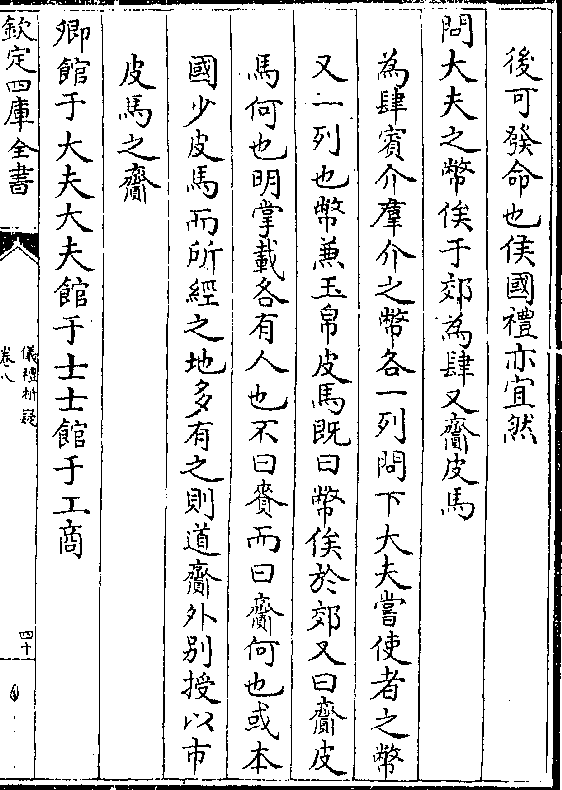 後可發命也侯國禮亦宜然
問大夫之幣俟于郊為肆又齎皮馬
為肆賓介羣介之幣各一列問下大夫嘗使者之幣
又一列也幣兼玉帛皮馬既曰幣俟於郊又曰齎皮
馬何也明掌載各有人也不曰賫而曰齎何也或本
國少皮馬而所經之地多有之則道齎外别授以市
皮馬之齎
卿館于大夫大夫館于士士館于工商
欽定四庫全書
儀禮析疑
卷八
四十